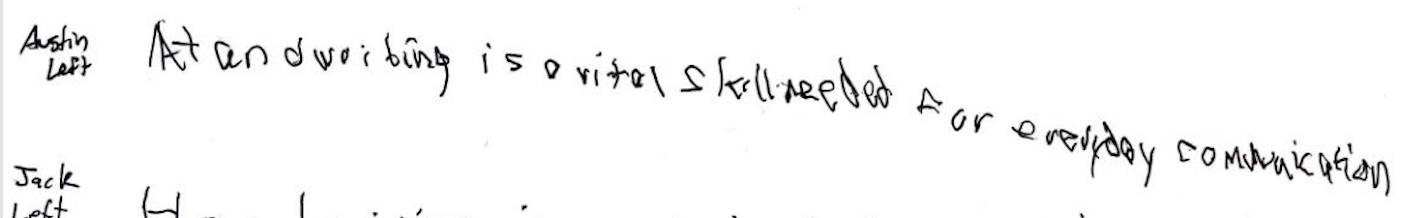 Austin
Left
Handwriting is a vital skill needed for everyday communication
Jack
Left